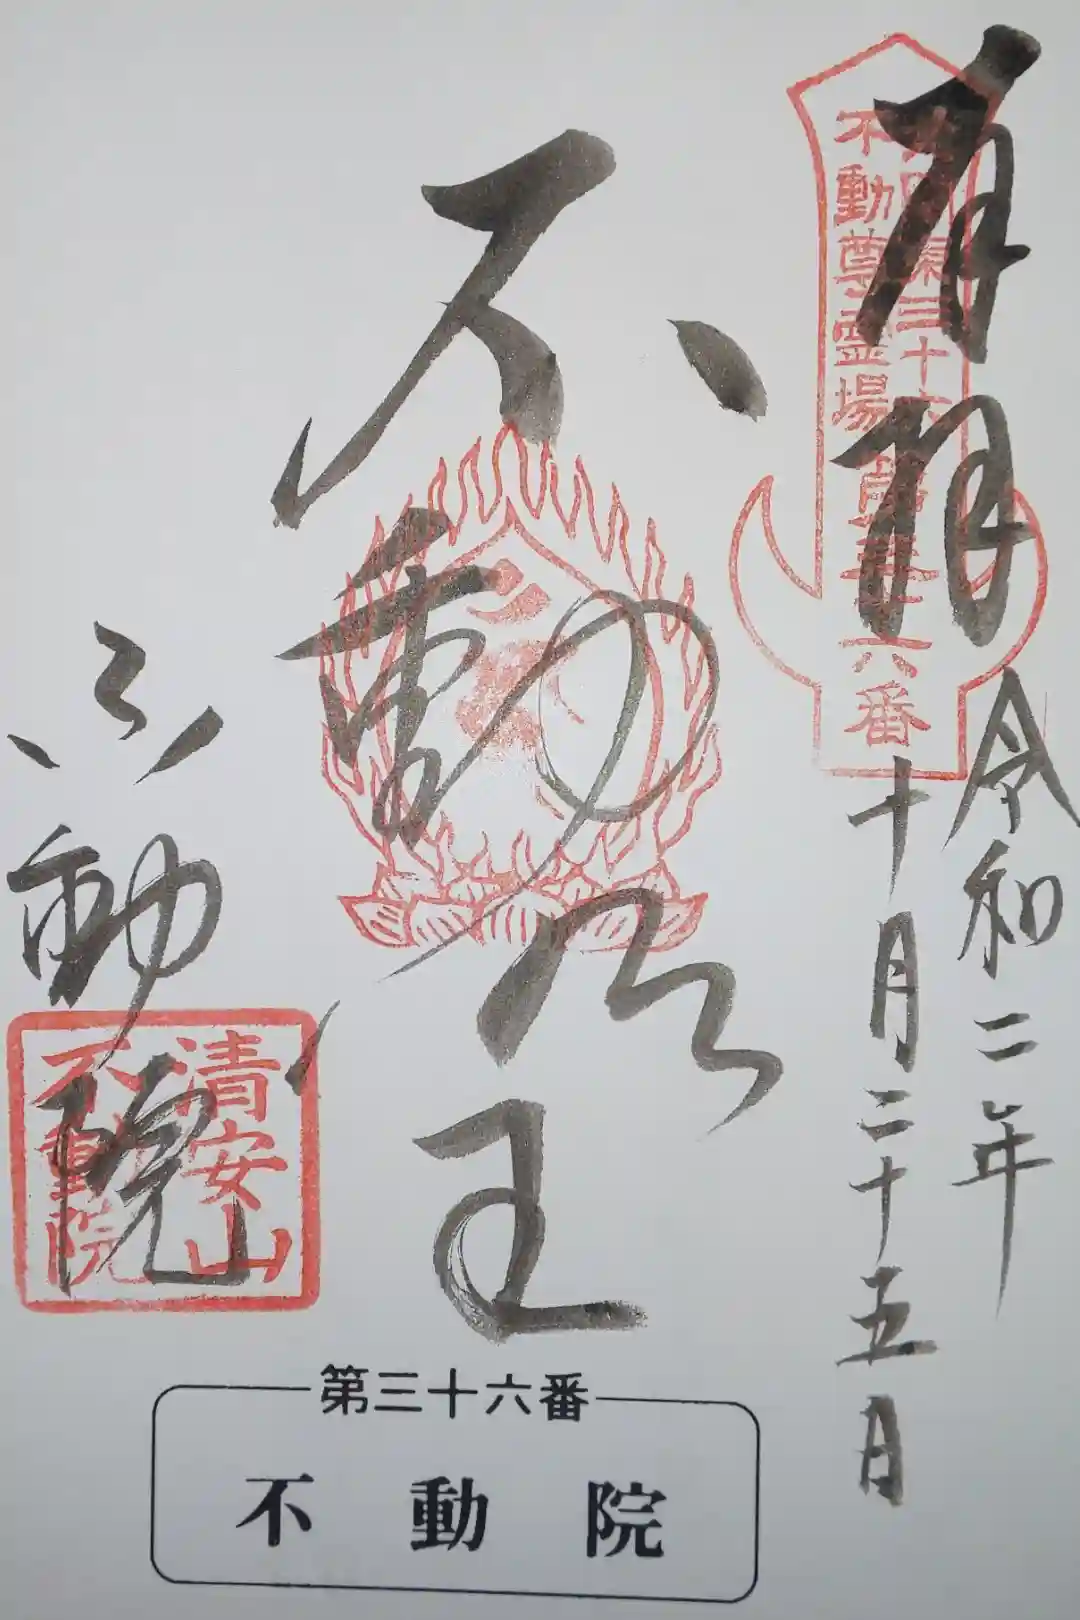 奉拝
令和二年
十月二十五日
不動尊霊場
第三十六番
不動明王
不動院
清安山
不動院
第三十六番
不動院